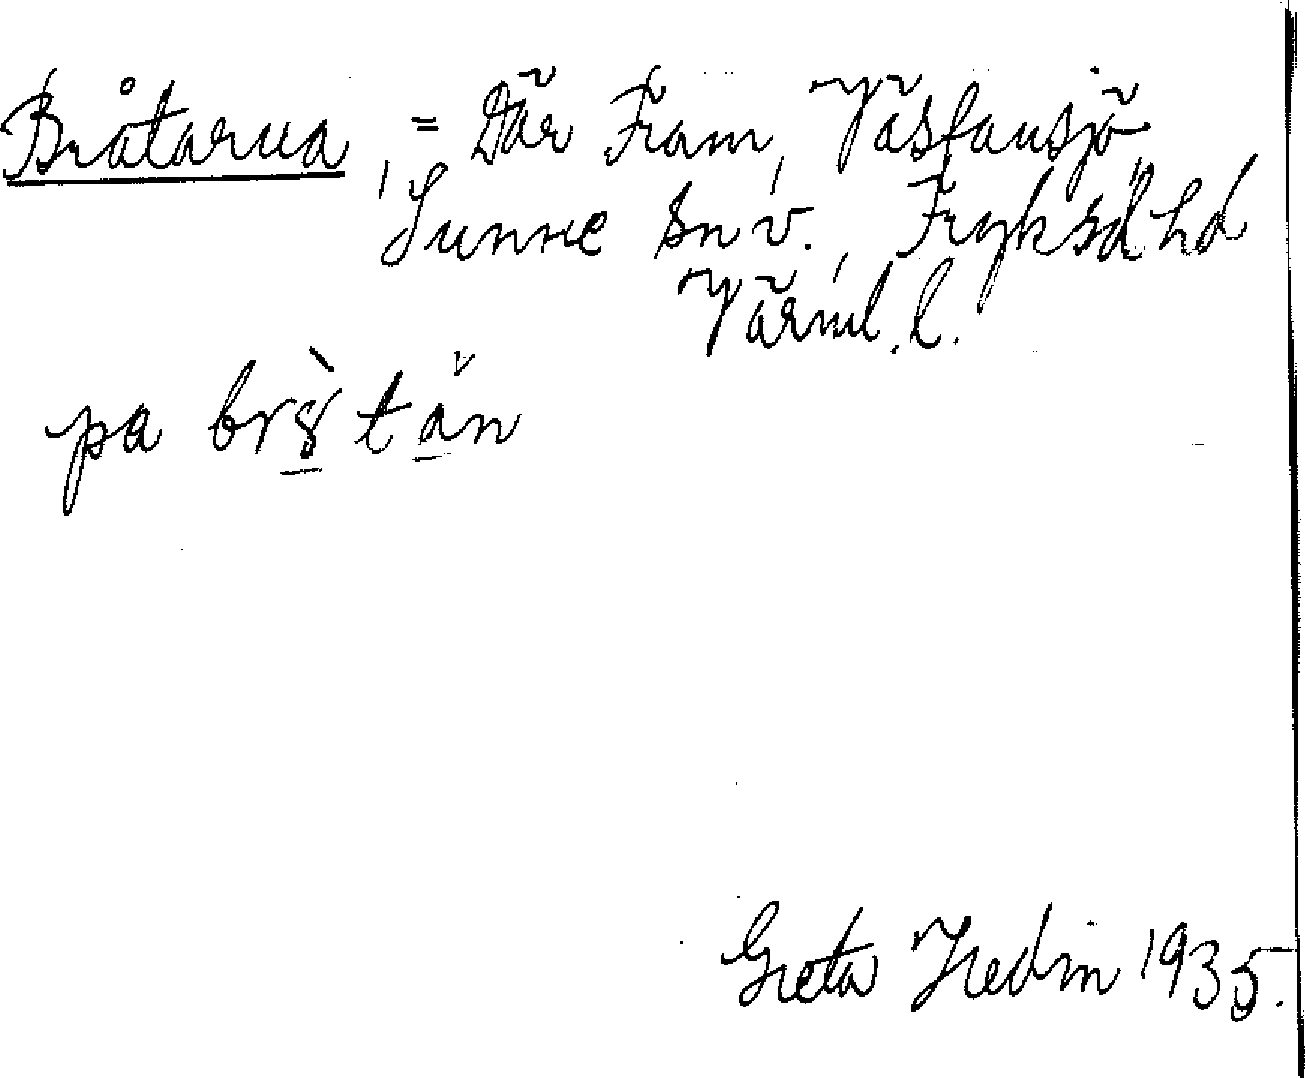 Bråtarua, = Där Fram, Väsfansjö
Sunne sn v. Fryksd hd
Värml. l.
pa brὸ̣tän
Greta Hedin 1935.